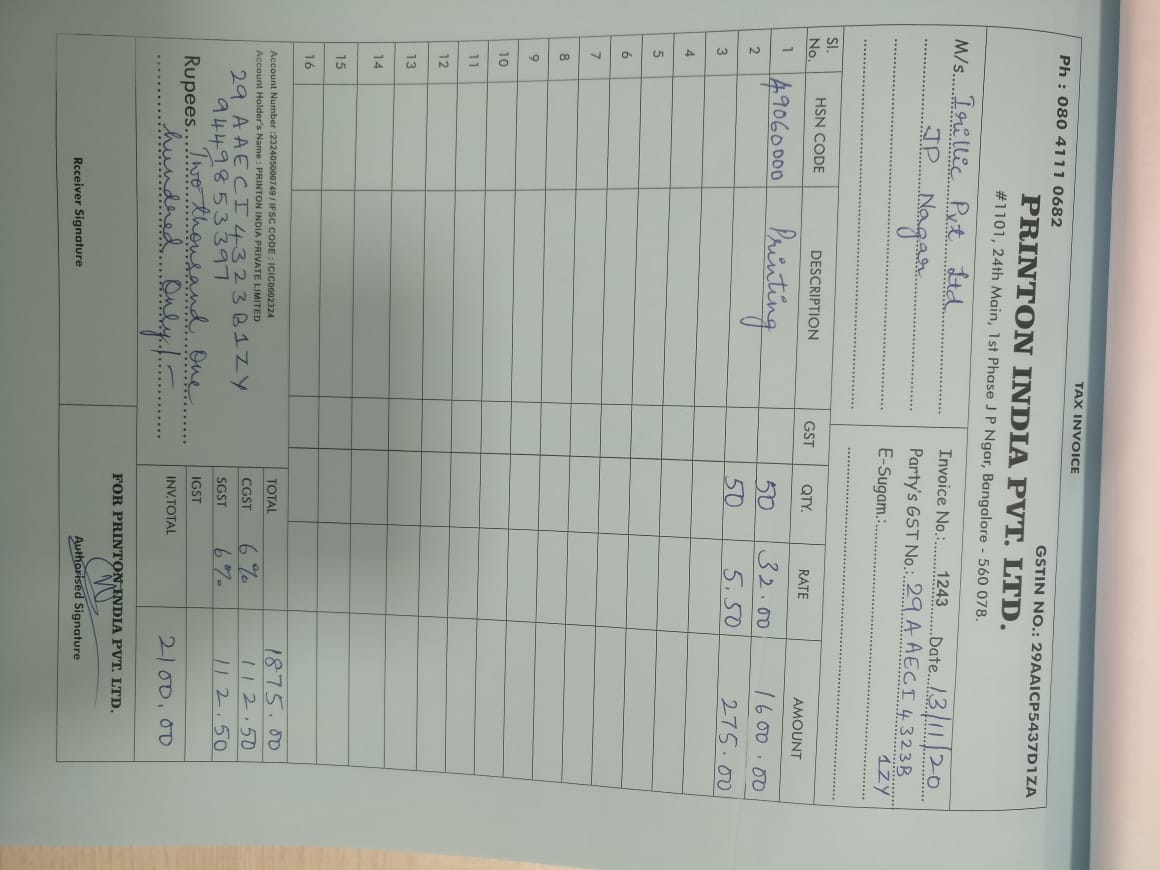 TAX INVOICE
Ph : 080 4111 0682 GSTIN NO.: 29AAICP5437D1ZA
PRINTON INDIA PVT. LTD.
#1101, 24th Main, 1st Phase J P Ngar, Bangalore - 560 078.
M/s. Irillic Pvt Ltd
JP Nagar
Invoice No.: 1243 Date 13/11/20
Party's GST No.: 29AAECI4323B
1ZY
E-Sugam.:
Sl. No. HSN CODE DESCRIPTION GST QTY. RATE AMOUNT
1 49060000 Printing
2 50 32.00 1600.00
3 50 5.50 275.00
4
5
6
7
8
9
10
11
12
13
14
15
16
Account Number :232405000749 / IFSC CODE : ICIC0002324
Account Holder's Name : PRINTON INDIA PRIVATE LIMITED
29AAECI4323B1ZY
9449853397
Rupees Two thousand One
hundred Only/-
TOTAL 1875.00
CGST 6% 112.50
SGST 6% 112.50
IGST
INV.TOTAL 2100.00
FOR PRINTON INDIA PVT. LTD.
Rcceiver Signature
Authorised Signature